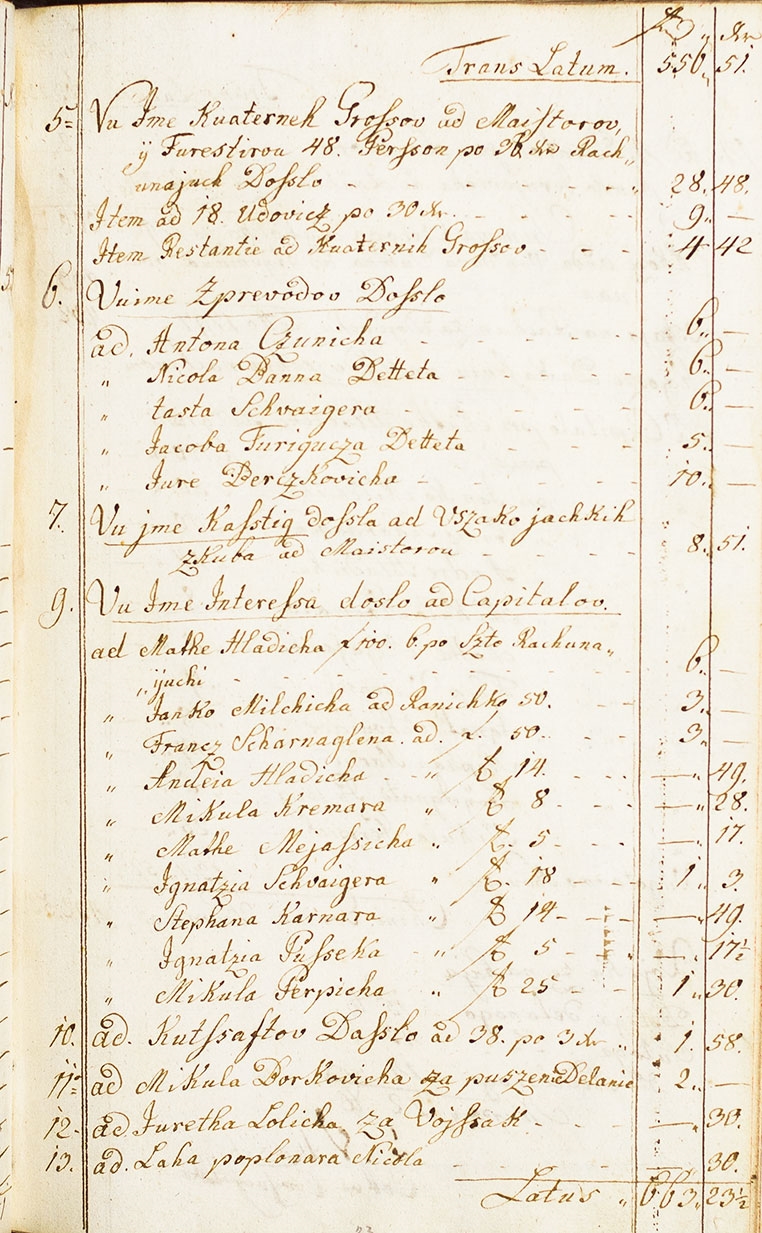 f „ Xr
Trans Latum. 550„ 51.
5= Vu Ime Kuaterneh Grossov ad Maistorov,
ÿ Furestirov 48. Persson po 36. Xr Rach„
unajuch Dosslo - - - - - - „ 28. 48.
Item ad 18. Udovicz po 30 Xr. - - - - 9„ —
Item Restantie ad Kuaternih Grossov - - - 4 42
6. Vuime Zprevodov Dosslo
ad. Antona Czunicha - - - - - 6„ —
„ Nicola Danna Detteta - - - - - 6„ —
„ tasta Schvaigera - - - - - 6„ —
„ Jacoba Furigucza Detteta - - - - 5„ —
„ Jure Berczkovicha - - - - - 10„ —
7. Vu jme Kasstig dossla ad Vszako jachkih
zkuba ad Maistorou - - - - 8„ 51.
9. Vu Ime Interessa doslo ad Capitalov.
ad Mathe Hladicha f 100. 6. po Szto Rachuna„
„ ijuchi - - - - - - - 6„ —
„ Janko Milchicha ad Ranichko 50. - - 3„ —
„ Francz Scharnaglena. ad. f. 50. - - 3„ —
„ Andreia Hladicha - „ f 14. - - - —„ 49.
„ Mikula Kremara „ f 8 - - - —„ 28.
„ Mathe Mejassicha „ f. 5 - - - —„ 17.
„ Ignatzia Schvaigera „ f. 18 - - - 1„ 3.
„ Stephana Karnara „ f 14 - - - —„ 49.
„ Ignatzia Pusseka - „ f 5 - - - —„ 17½
„ Mikula Perpicha „ f 25 - - 1„ 30.
10. ad. Kutssaftov Dasslo ad 38. po 3 Xr „ 1. 58.
11= ad Mikula Borkovicha za puszeno Delanie 2„ —
12- ad Juretha Lolicha za Vojssak - - - —„ 30.
13. ad. Laha poplonara Nicola - - - - 30.
Latus „ 663„ 23½